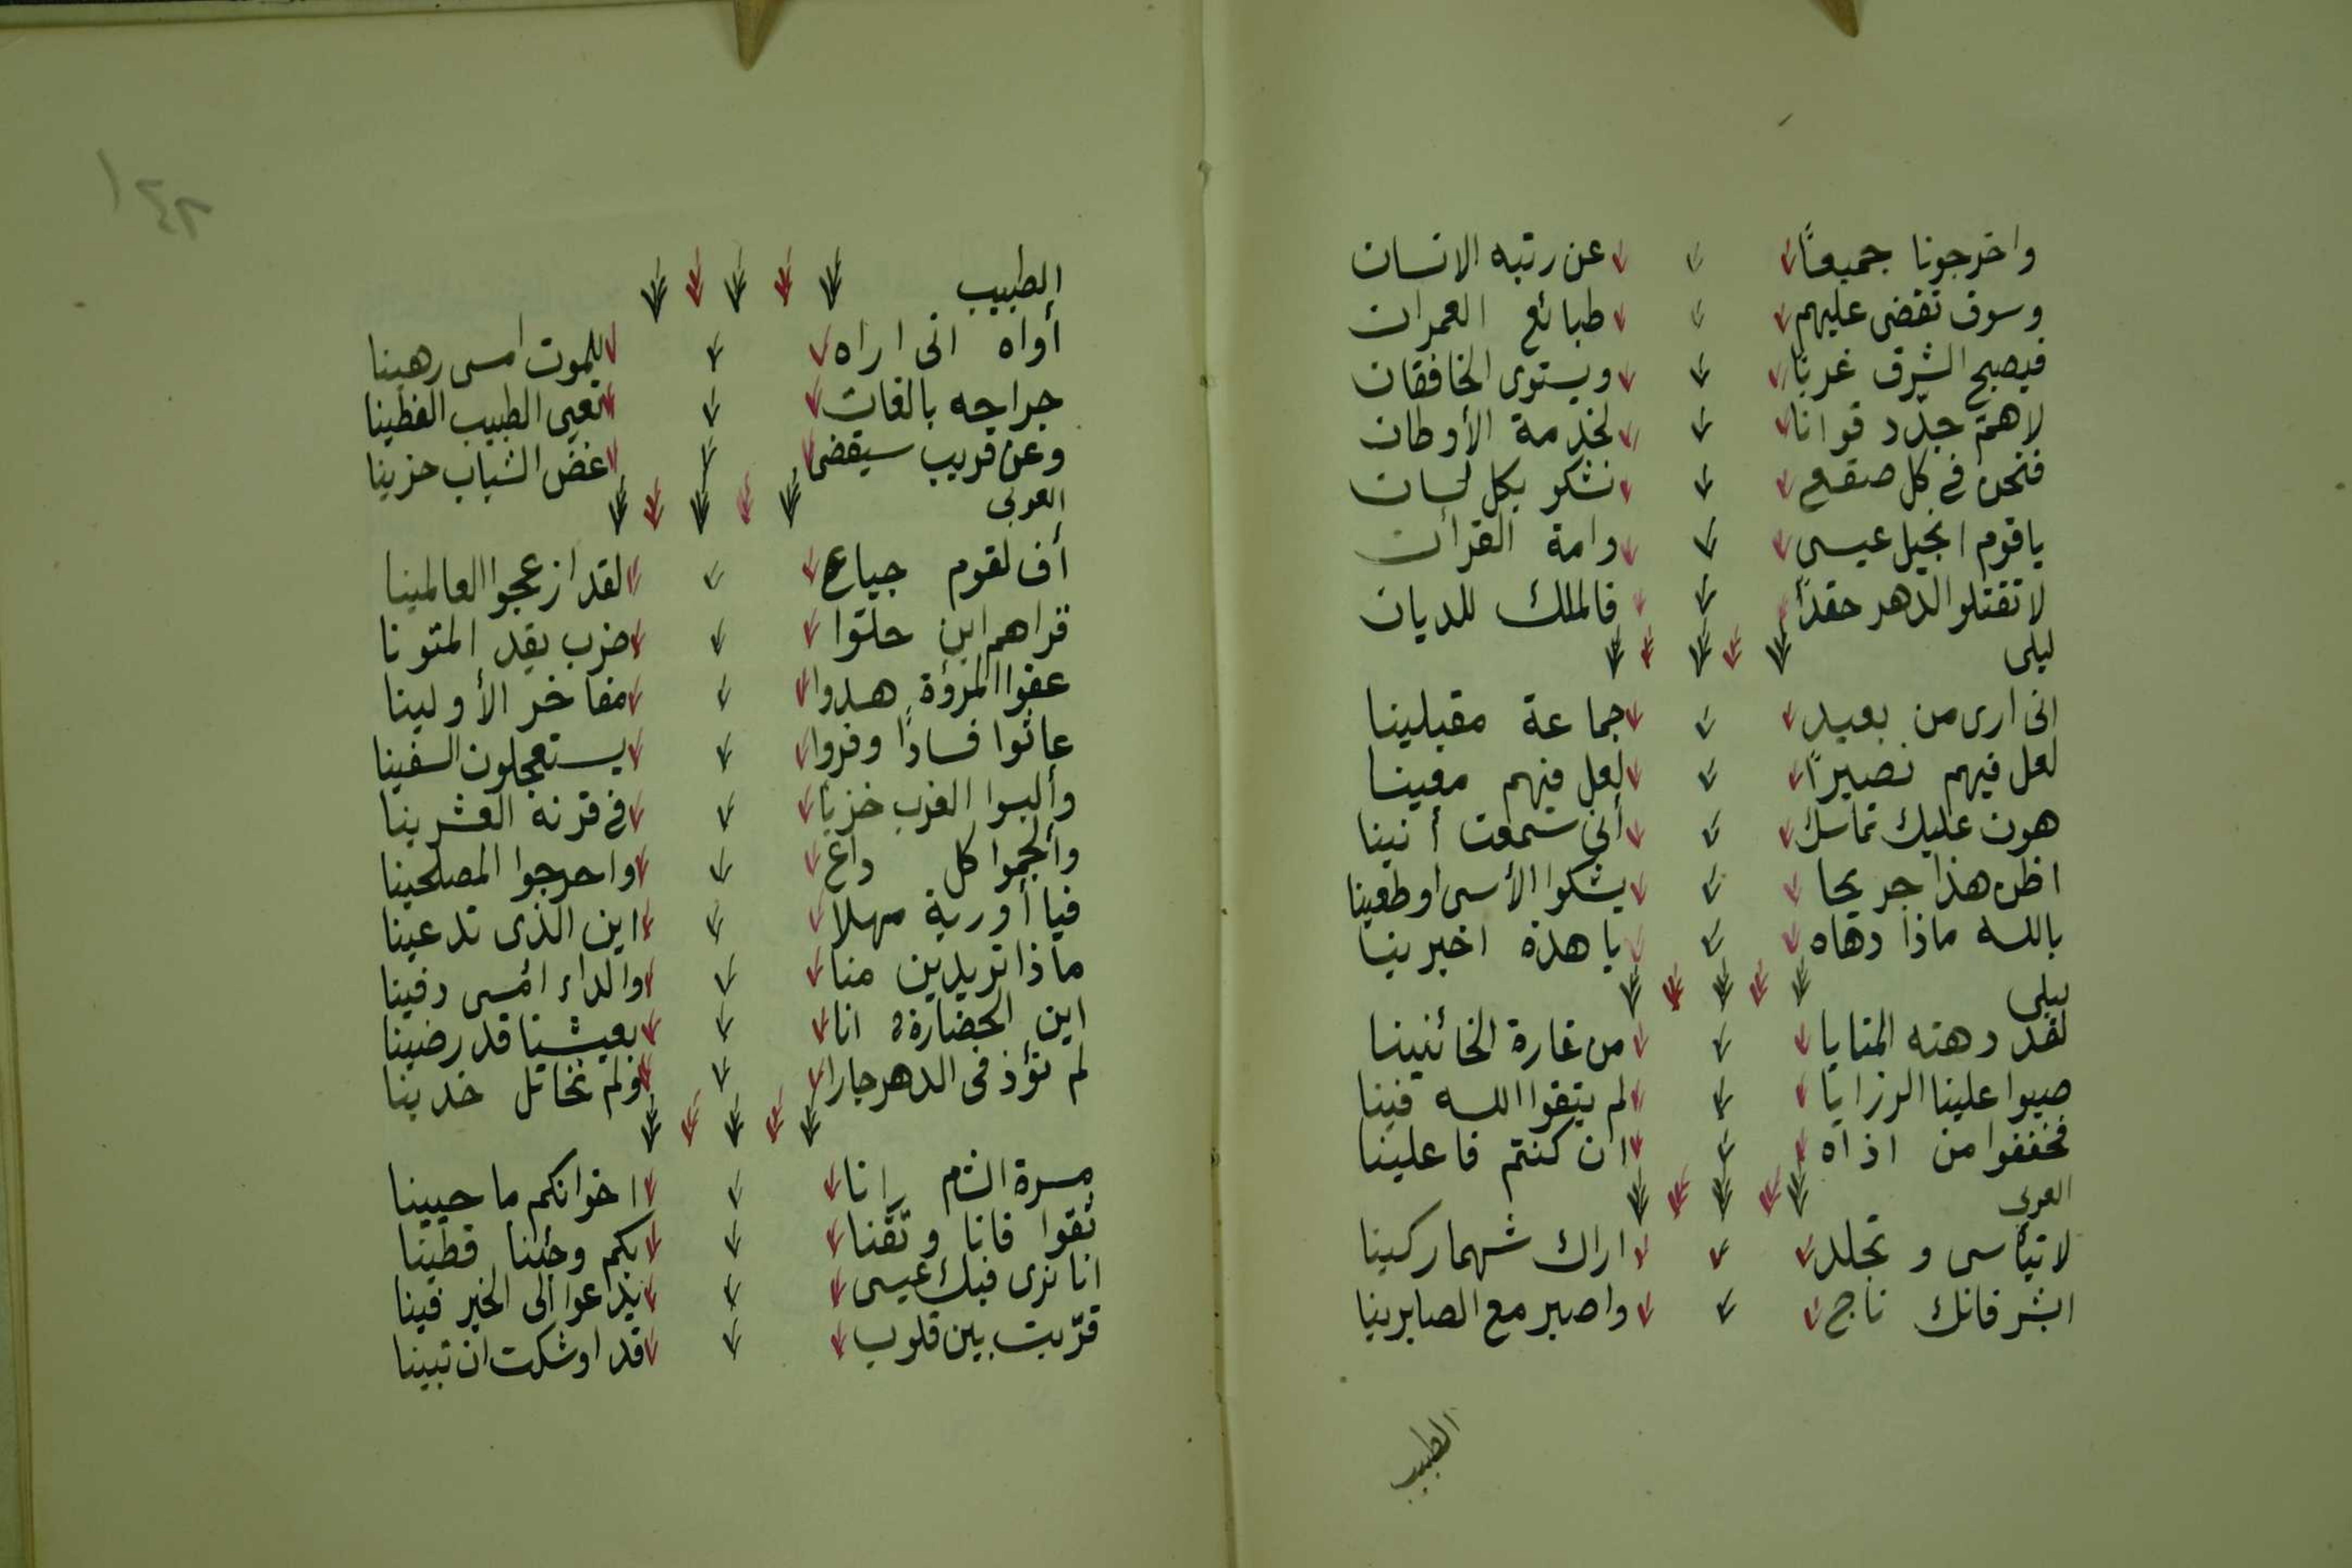 واخرجونا جميعًا عن رتبه الانسان
وسوف تقضى عليهم طبائع العمران
فيصبح الشرق غربًا ويستوى الخافقان
لاهمّ جدّد قوانا لخدمة الأوطان
فنحن فى كل صقع نشكو بكل لسان
ياقوم انجيل عيسى وامة القرآن
لا تقتلوا الدهر حقدًا فالملك للديان
ليلى
انى ارى من بعيد جماعة مقبلينا
لعل فيهم نصيرًا لعل فيهم معينا
هون عليك تماسك أنى سمعت أنينا
اظن هذا جريحا يشكوا الأسى اوطعينا
بالله ماذا دهاه يا هذه اخبرينا
ليلى
لقد دهته المنايا من غارة الخائنينا
صبوا علينا الرزايا لم يتقوا الله فينا
فخففوا من اذاه ان كنتم فاعلينا
العربى
لا تيأسى و تجلد اراك شهما ركينا
ابشر فانك ناج واصبر مع الصابرينا
الطبيب
١٤٢
الطبيب
أواه انى اراه للموت امسى رهينا
جراحه بالغات تعيى الطبيب الفطينا
وعن قريب سيقضى غض الشباب حزينا
العربى
أف لقوم جياع لقد ازعجوا العالمينا
قراهم اين حلّوا ضرب يقد المتونا
عفوا المرؤة هدوا مفاخر الأولينا
عاثوا فسادًا وفروا يستعجلون السفينا
وألبسوا الغرب خزيا فى قرنه العشرينا
وألجموا كل داع واحرجوا المصلحينا
فيا أوربة مهلا اين الذى تدعينا
ماذا تريدين منا والداء امسى دفينا
اين الحضارة انا بعيشنا قد رضينا
لم نؤذ فى الدهر جارا ولم نخاتل خدينا
مسرة الشام انا اخوانكم ما حيينا
ثقوا فانا وثقنا بكم وجئنا قطينا
انا نرى فيك عيسى يدعوا الى الخير فينا
قرّبت بين قلوب قد اوشكت ان تبينا